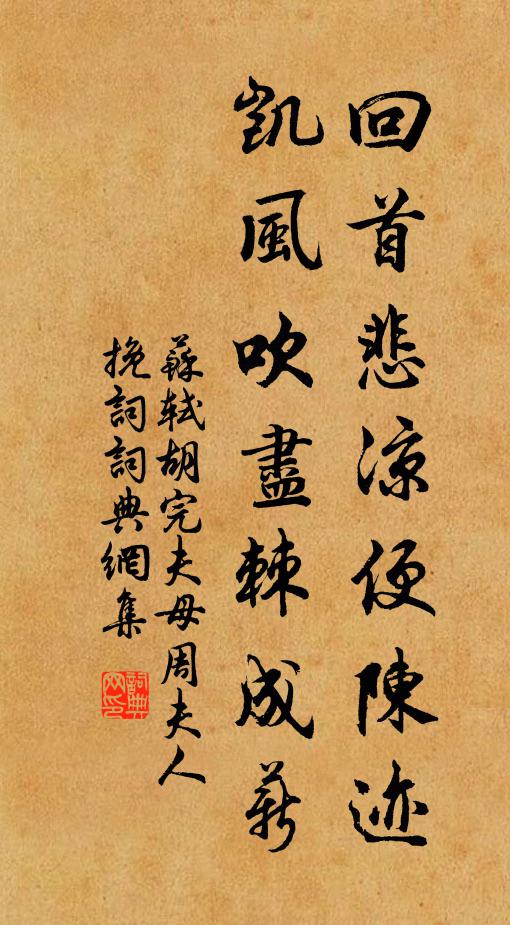 回首悲涼便陳迹
凱風吹盡棘成薪
蘇軾胡完夫母周夫人
挽詞詞典網集
詞典
网印